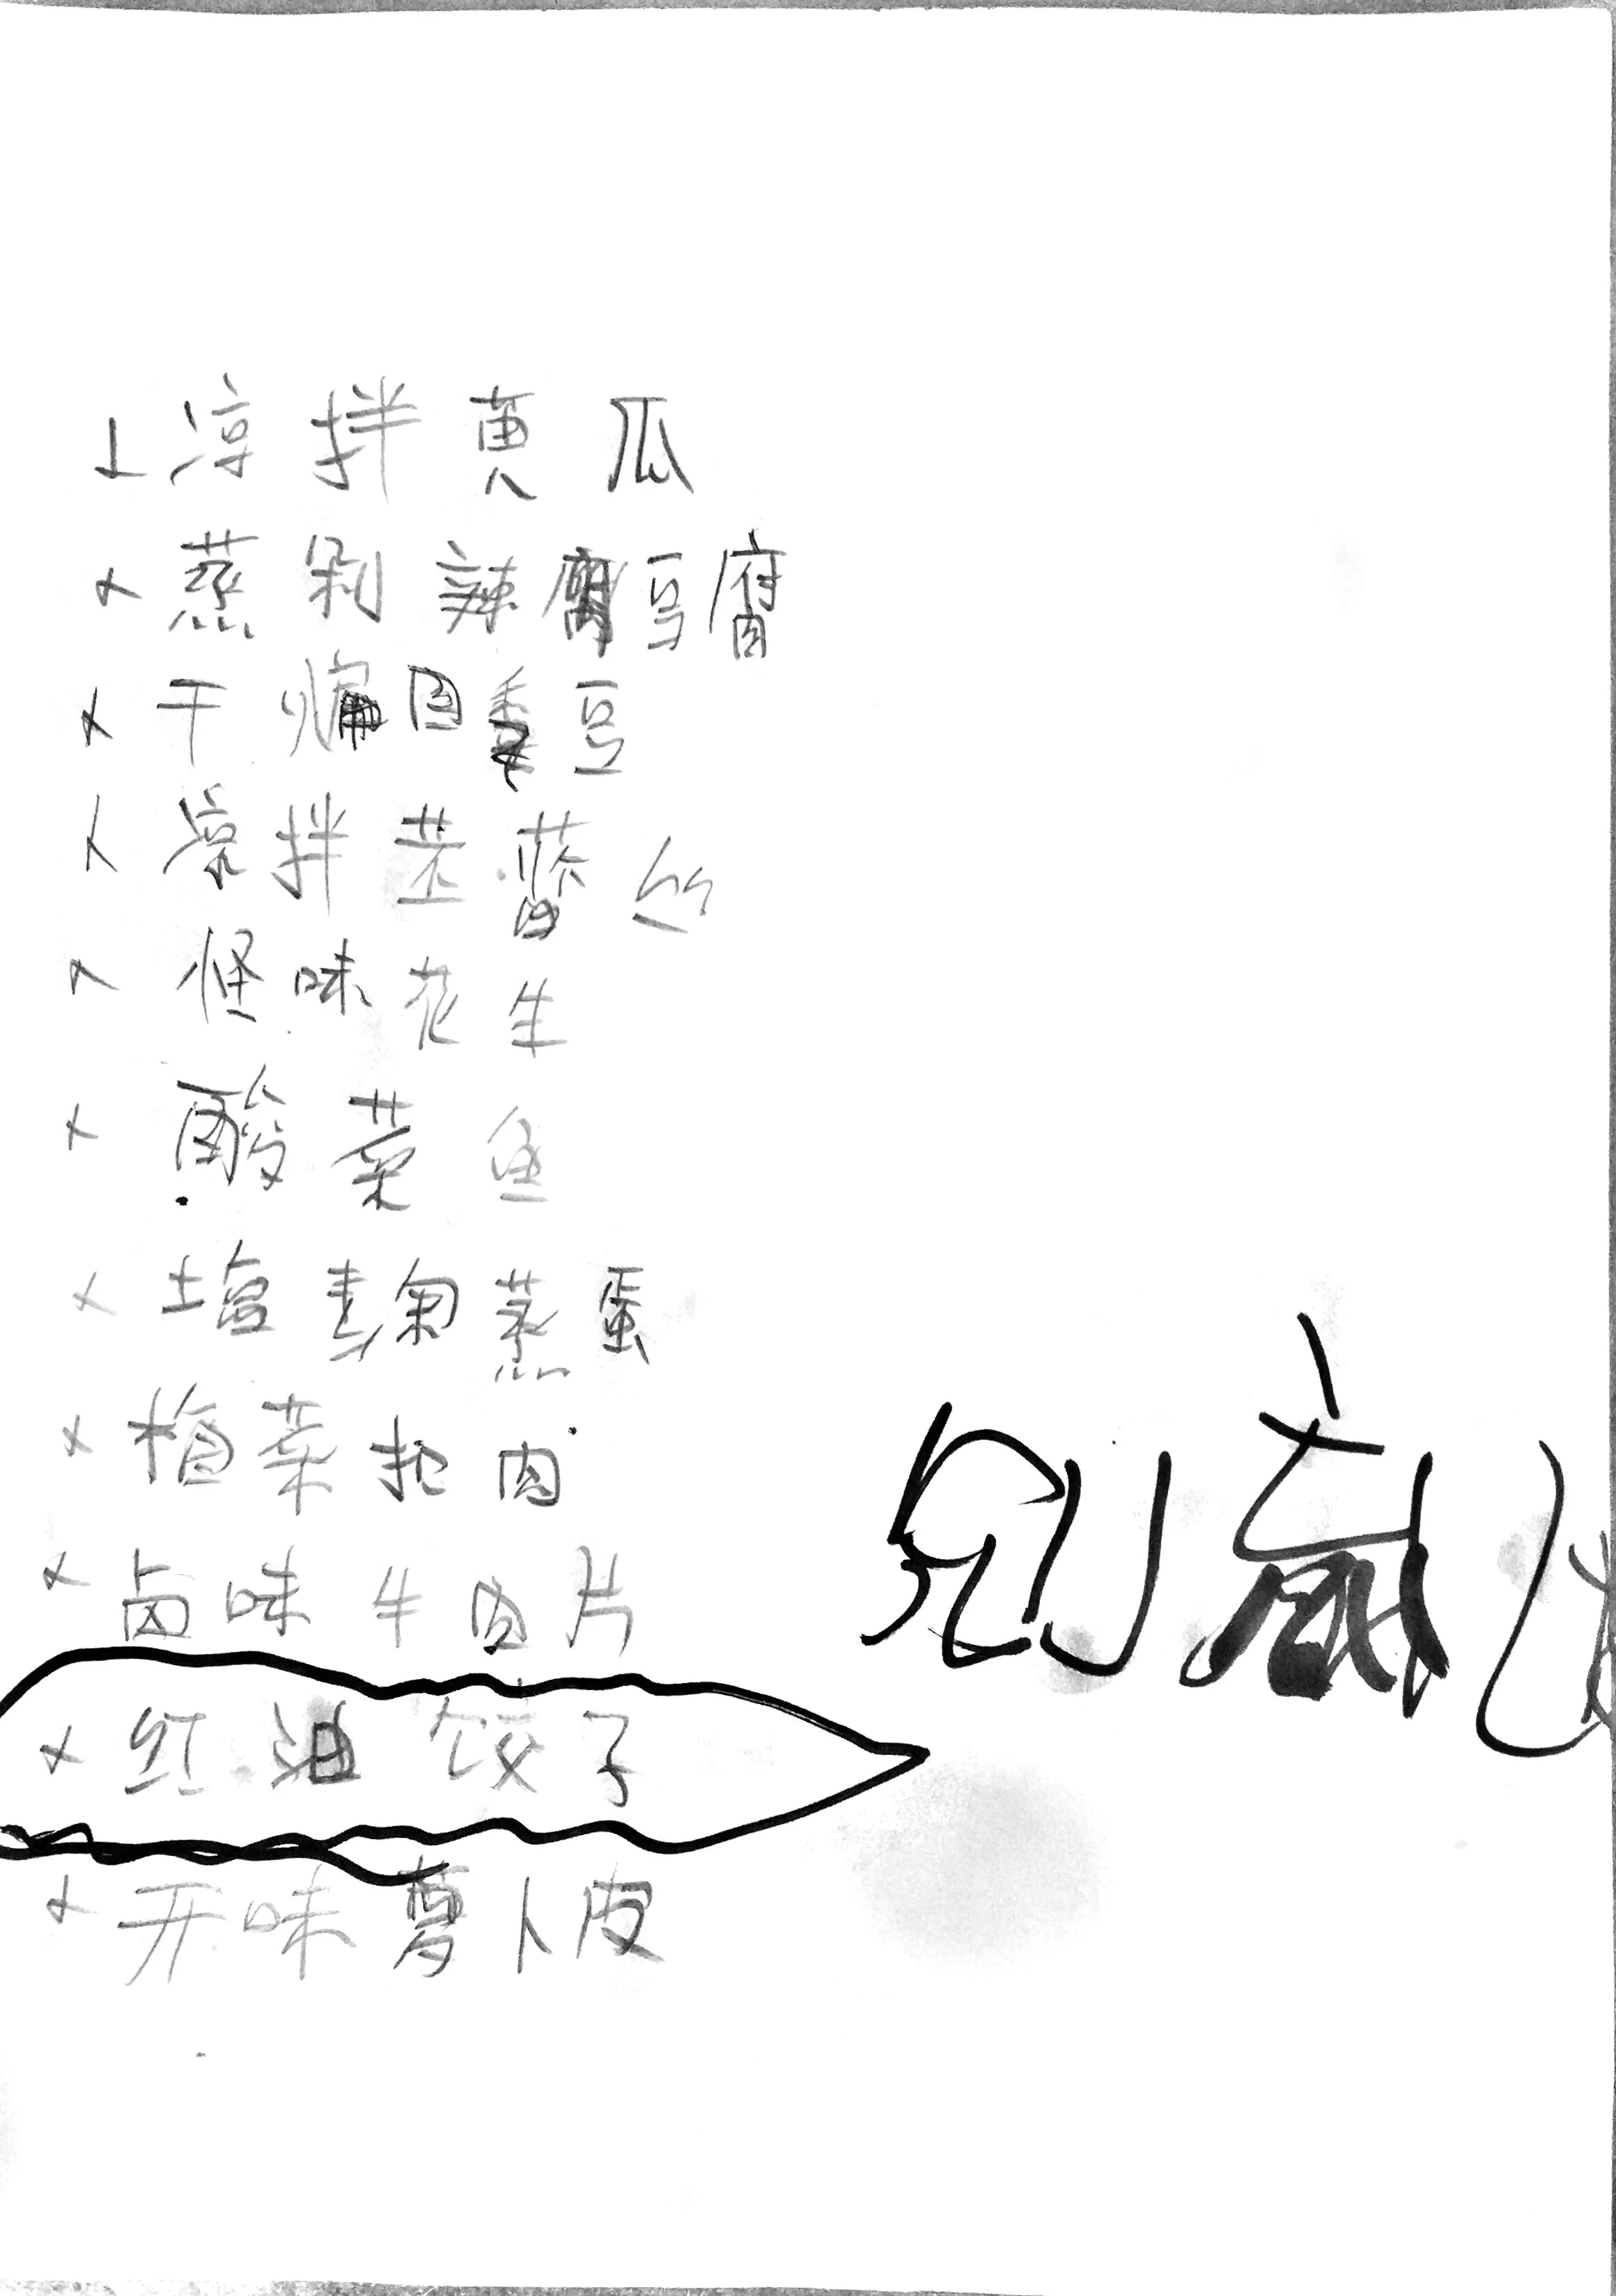 凉拌黄瓜
蒸剁辣豆腐
干煸四季豆
凉拌苤蓝丝
怪味花生
酸菜鱼
蒸蛋
梅菜扣肉
卤味牛肉片
红油饺子
开味萝卜皮